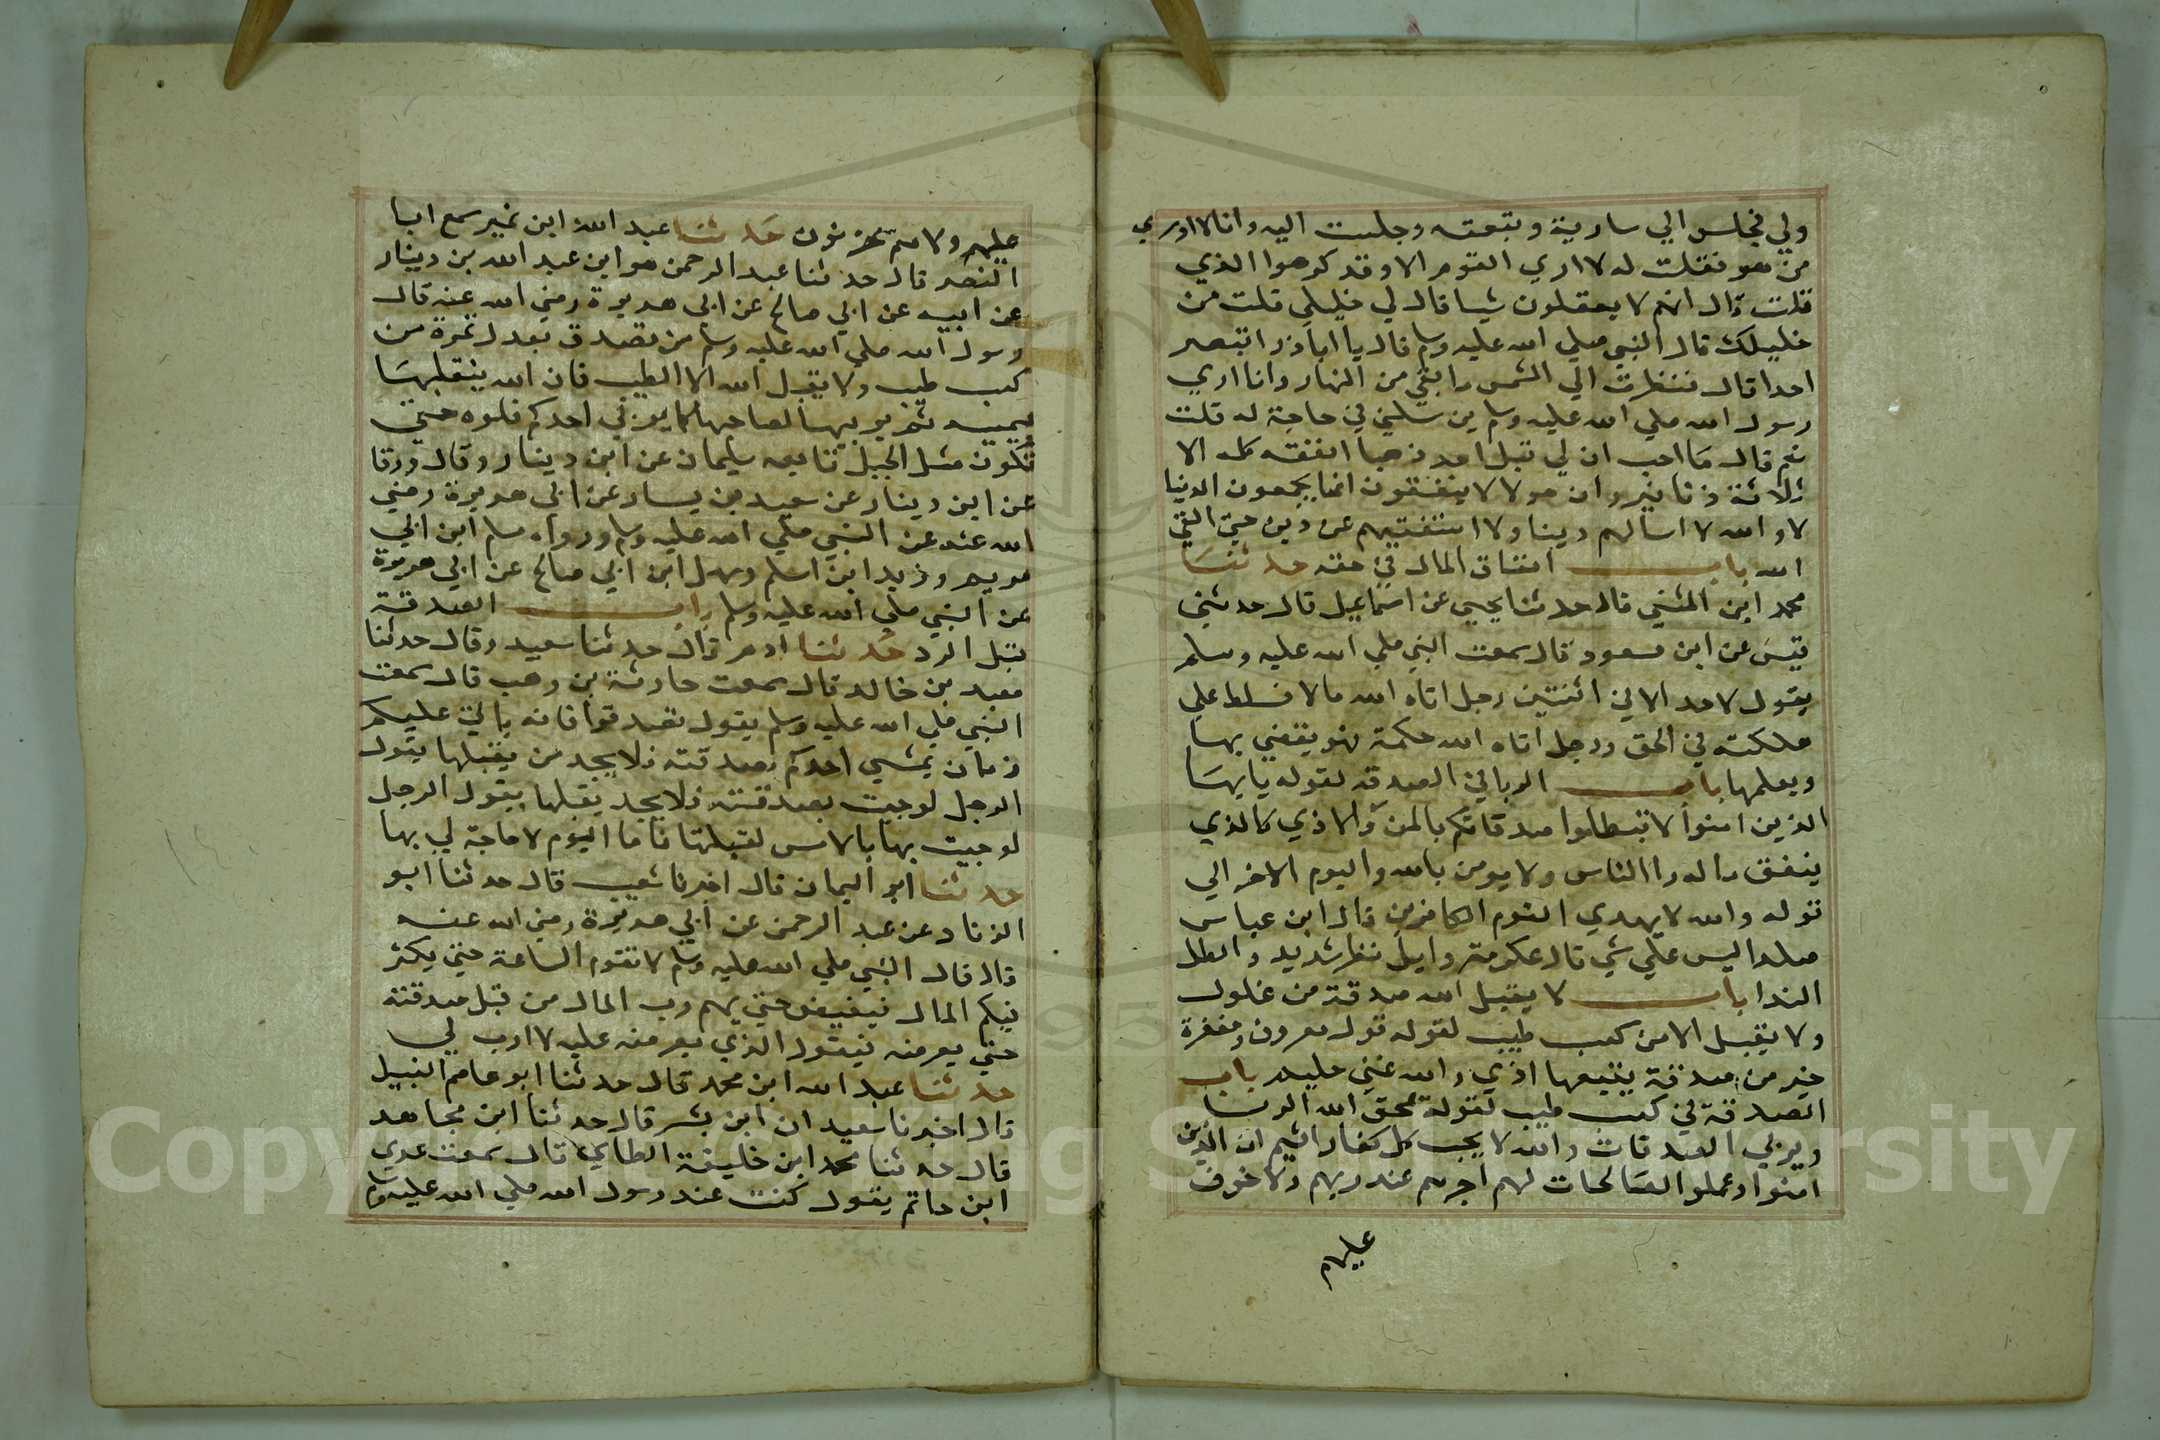 ولي فجلس الي سارية وتبعته وجلست اليه وانا لا ادري
من هو فقلت له لا اري القوم الا وقد كرهوا الذي
قلت قال انهم لا يعقلون شيا قال لي خليلي قلت من
خليلك قال النبي صلي الله عليه وسلم قال يا اباذر اتبصر
احدا قال فنظرت الي الشمس ما بقي من النهار وانا اري
رسول الله صلي الله عليه وسلم يرسلني في حاجة له قلت
نعم قال ما احب ان لي مثل احد ذهبا انفقه كله الا
ثلاثة دنانير وان هولا لا ينفقون انما يجمعون الدنيا
لا والله لا اسالهم دينا ولا استفتيهم عن دين حتي القي
الله باب انفاق المال في حقه حدثنا
محمد ابن المثني قال حدثنا يحيي عن اسماعيل قال حدثني
قيس عن ابن مسعود قال سمعت النبي صلي الله عليه وسلم
يقول لا حد الا في اثنتين رجل اتاه الله مالا فسلط علي
هلكته في الحق ورجل اتاه الله حكمة فهو يقضي بها
ويعلمها باب الربا في الصدقه لقوله يا يها
الذين امنوا لا تبطلوا صدقاتكم بالمن والاذي كالذي
ينفق ماله را الناس ولا يومن بالله واليوم الاخر الي
قوله والله لا يهدي القوم الكافرين قال ابن عباس
صلدا ليس علي شي قال عكرمة وابل مطر شديد والطل
الندا باب لا يقبل الله صدقة من غلول
ولا يقبل الا من كسب طيب لقوله قول معروف ومغفرة
خير من صدقة يتبعها اذي والله غني حليم باب
الصدقة في كسب طيب لقوله يمحق الله الربا
ويربي الصدقات والله لا يحب كل كفار اثيم ان الذين
امنوا وعملوا الصالحات لهم اجرهم عند ربهم ولا خوف
عليهم
عليهم ولا هم يحزنون حدثنا عبد الله ابن نمير سمع ابا
النضر قال حدثنا عبد الرحمن هو ابن عبد الله بن دينار
عن ابيه عن ابي صالح عن ابي هريرة رضي الله عنه قال
رسول الله صلي الله عليه وسلم من تصدق بعدل تمرة من
كسب طيب ولا يقبل الله الا الطيب فان الله يتقبلها
بيمينه ثم يربيها لصاحبها كما يربي احدكم فلوه حتي
تكون مثل الجبل تابعه سليمان عن ابن دينار وقال ورقا
عن ابن دينار عن سعيد بن يسار عن ابي هريرة رضي
الله عنه عن النبي صلي الله عليه وسلم ورواه مسلم ابن ابي
مريم وزيد ابن اسلم وسهل ابن ابي صالح عن ابي هريرة
عن النبي صلي الله عليه وسلم باب الصدقة
قبل الرد حدثنا ادم قال حدثنا سعيد وقال حدثنا
معبد بن خالد قال سمعت حارثة بن وهب قال سمعت
النبي صلي الله عليه وسلم يقول تصدقوا فانه ياتي عليكم
زمان يمشي احدكم بصدقته فلا يجد من يقبلها يقول
الرجل لو جيت بصدقته فلا يجد يقبلها يقول الرجل
لو جيت بها بالامس لقبلتها فاما اليوم لا حاجة لي بها
حدثنا ابو اليمان قال اخبرنا شعيب قال حدثنا ابو
الزناد عن عبد الرحمن عن ابي هريرة رضي الله عنه
قال قال النبي صلي الله عليه وسلم لا تقوم الساعة حتي يكثر
فيكم المال فيفيض حتي يهم رب المال من قبل صدقته
حتي يعرضه فيقول الذي يعرضه عليه لا ارب لي
حدثنا عبد الله ابن محمد قال حدثنا ابو عاصم النبيل
قال اخبرنا سعيد ان ابن بشر قال حدثنا ابن مجاهد
قال حدثنا محمد ابن خليفة الطاي قال سمعت عدي
ابن حاتم يقول كنت عند رسول الله صلي الله عليه وسلم
Copyright © King Saud University